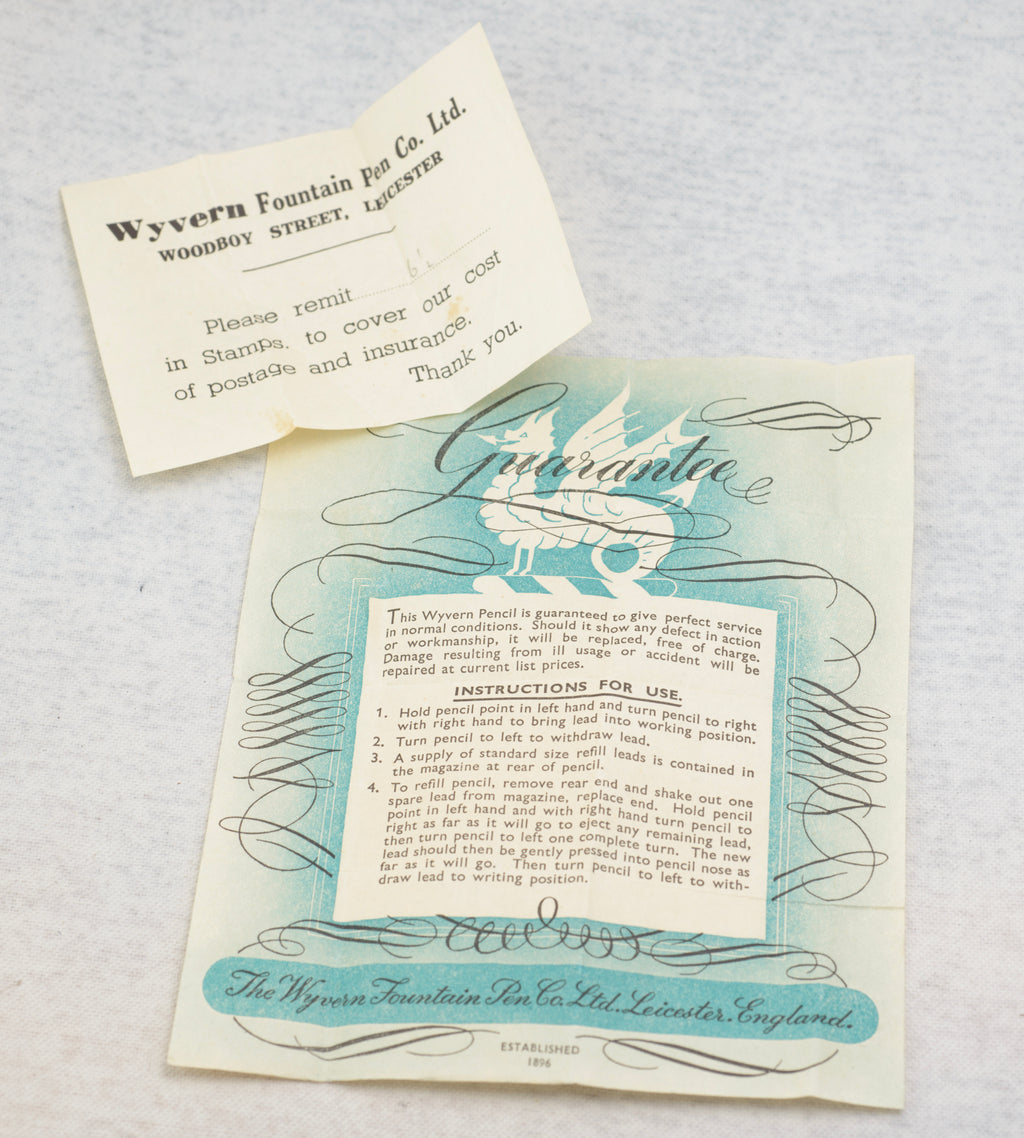 Wyvern Fountain Pen Co. Ltd.
WOODBOY STREET, LEICESTER
Please remit
in Stamps. to cover our cost
of postage and insurance.
Thank you.
Guarantee
This Wyvern Pencil is guaranteed to give perfect service
in normal conditions. Should it show any defect in action
or workmanship, it will be replaced, free of charge.
Damage resulting from ill usage or accident will be
repaired at current list prices.
INSTRUCTIONS FOR USE.
1. Hold pencil point in left hand and turn pencil to right
with right hand to bring lead into working position.
2. Turn pencil to left to withdraw lead.
3. A supply of standard size refill leads is contained in
the magazine at rear of pencil.
4. To refill pencil, remove rear end and shake out one
spare lead from magazine, replace end. Hold pencil
point in left hand and with right hand turn pencil to
right as far as it will go to eject any remaining lead,
then turn pencil to left one complete turn. The new
lead should then be gently pressed into pencil nose as
far as it will go. Then turn pencil to left to with-
draw lead to writing position.
The Wyvern Fountain Pen Co. Ltd. Leicester. England.
ESTABLISHED
1896